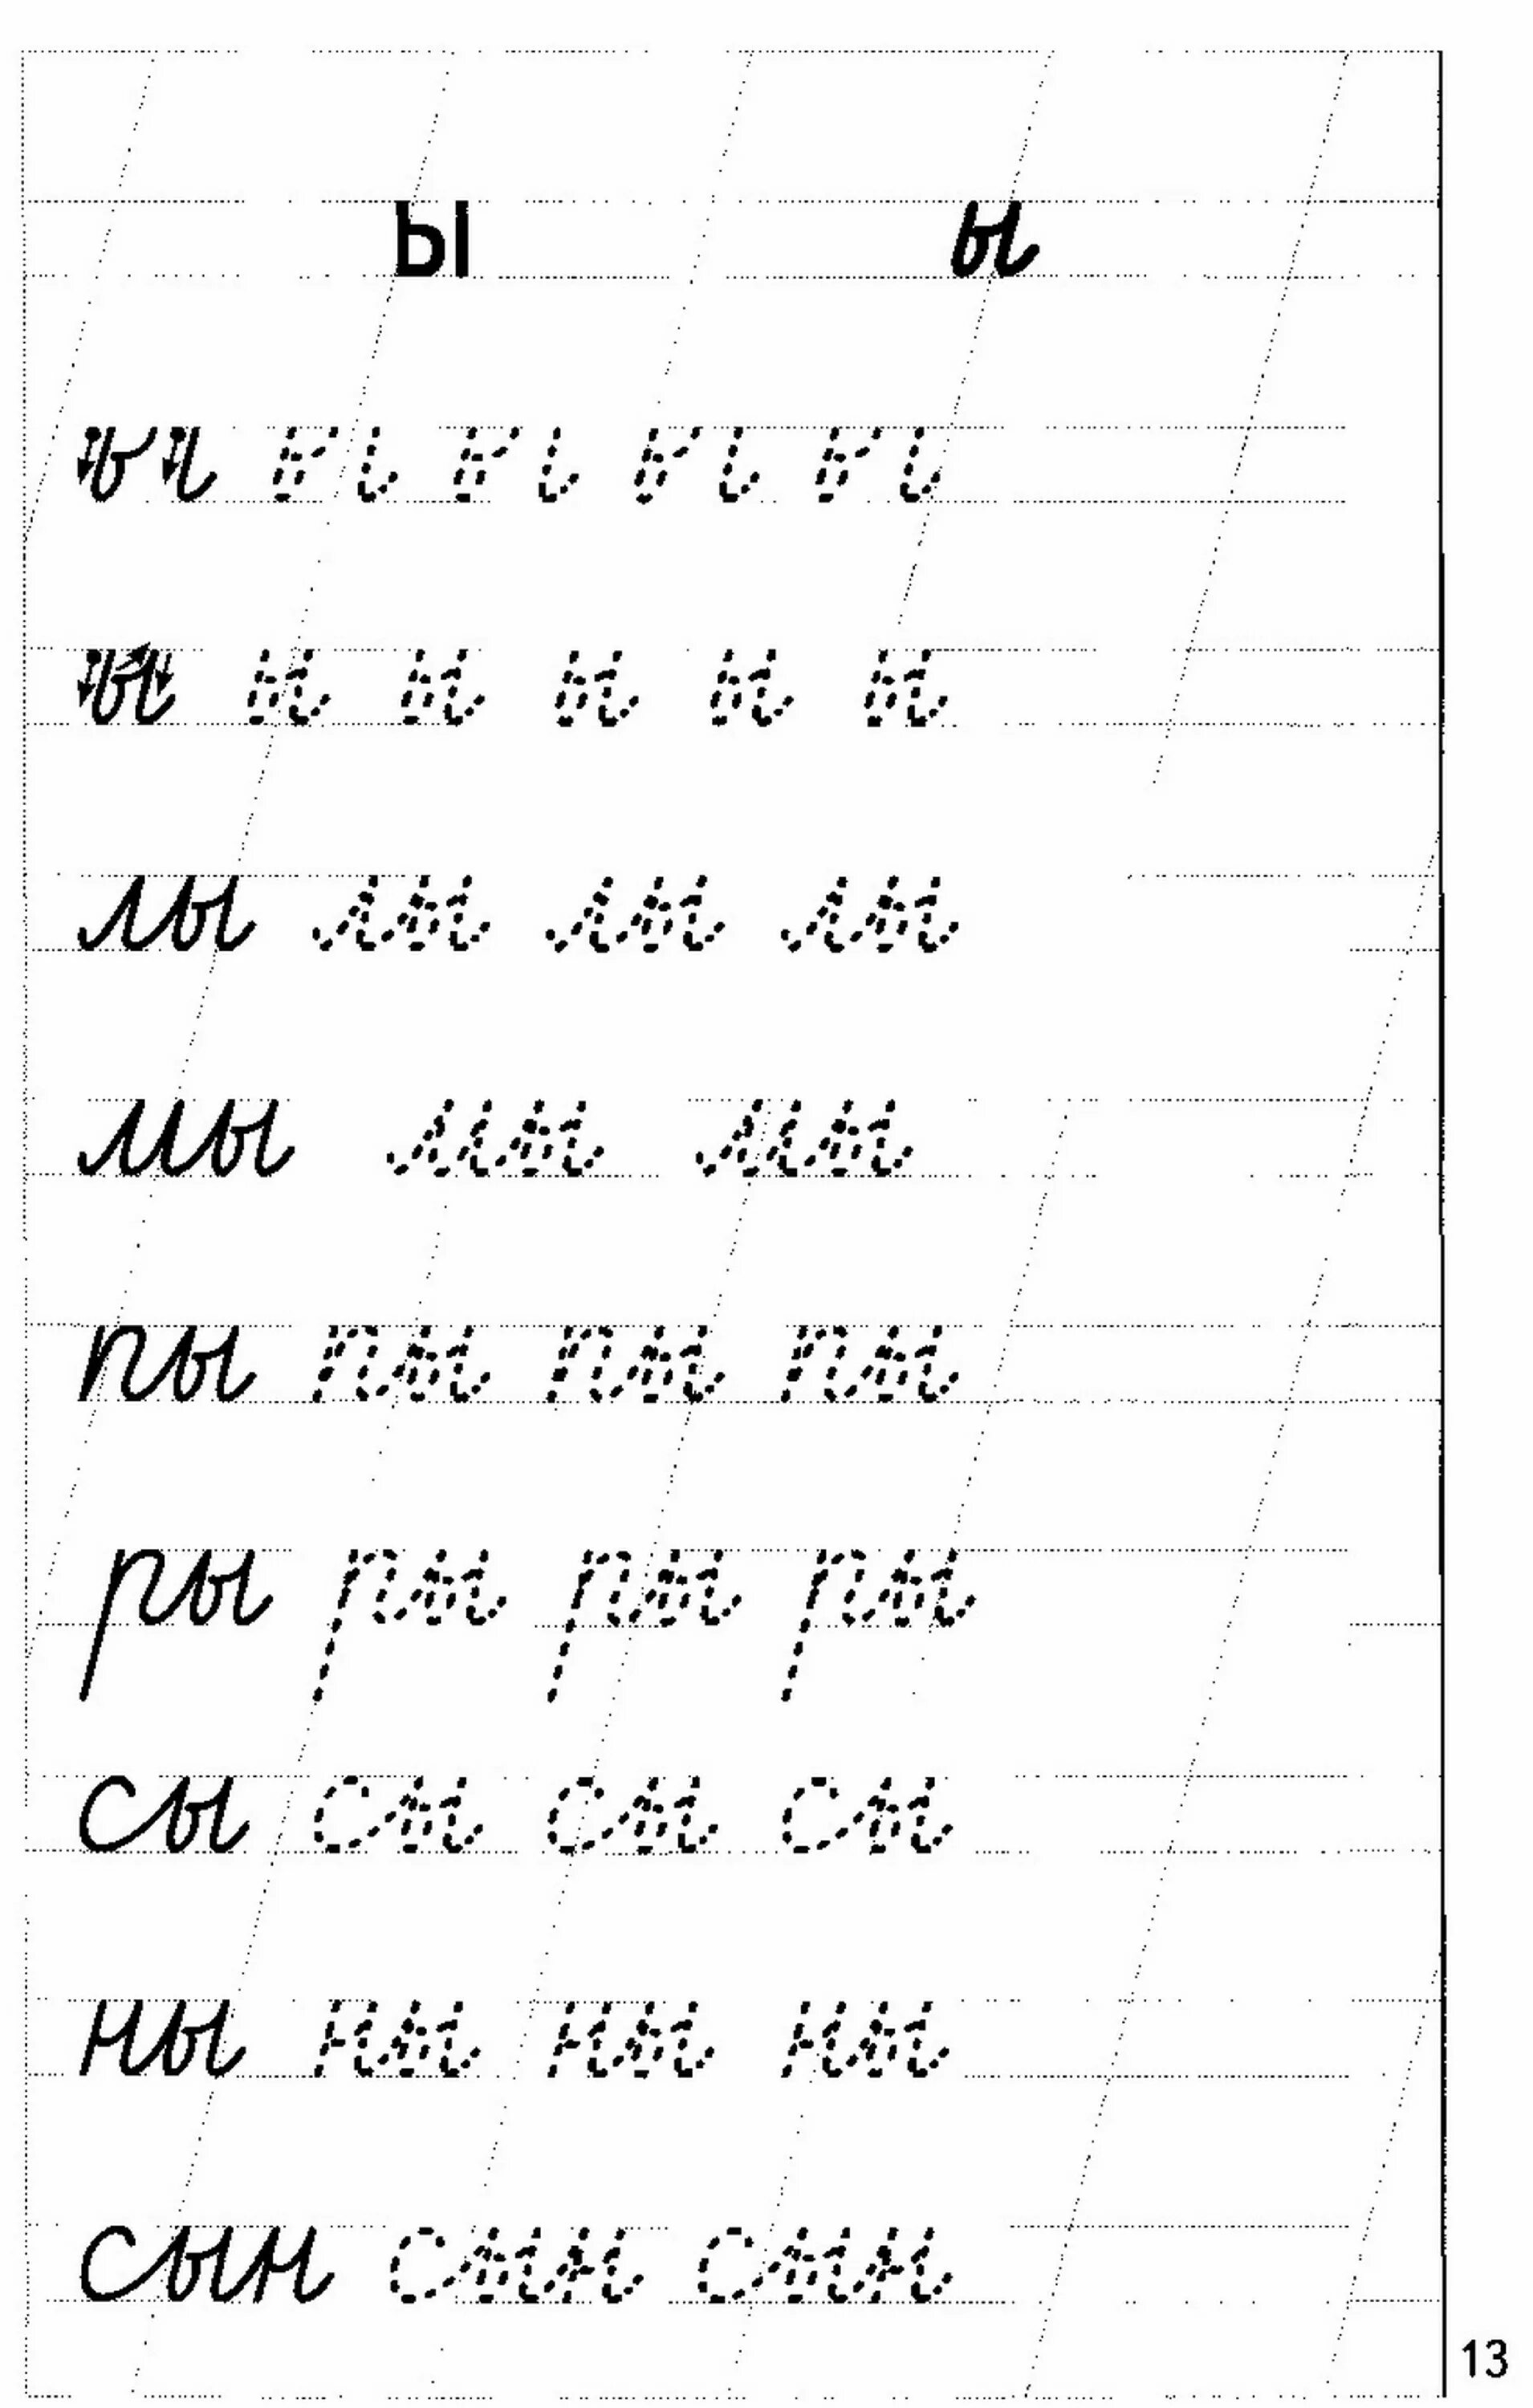 ы ы
ы ы ы ы ы
ы ы ы ы ы ы
лы лы лы лы
мы мы мы
пы пы пы пы
ры ры ры ры
сы сы сы сы
ны ны ны ны
сын сын сын
13